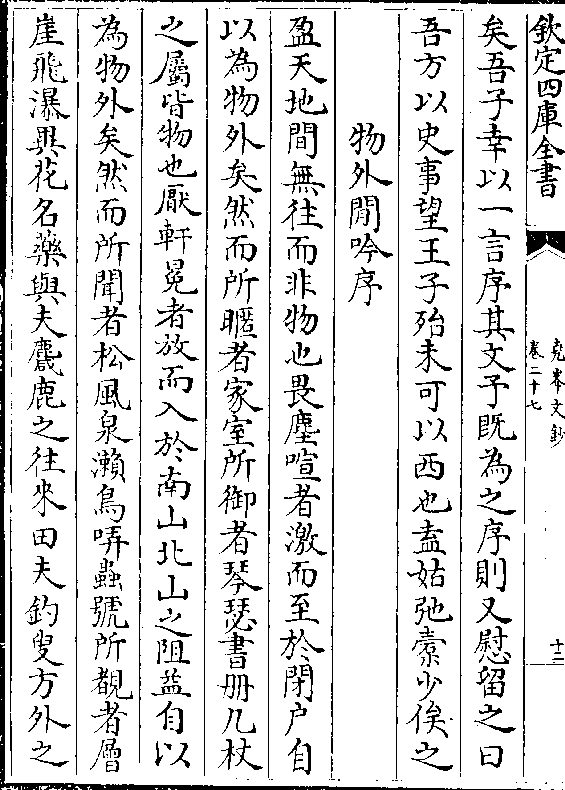 欽定四庫全書
堯峯文鈔
卷二十七
十二
矣吾子幸以一言序其文予既為之序則又慰留之曰
吾方以史事望王子殆未可以西也盍姑弛橐少俟之
物外閒吟序
盈天地間無往而非物也畏塵喧者激而至於閉户自
以為物外矣然而所暱者家室所御者琴瑟書册几杖
之屬皆物也厭軒冕者放而入於南山北山之阻益自以
為物外矣然而所聞者松風泉瀨鳥哢蟲號所覩者層
崖飛瀑異花名藥與夫麑鹿之往來田夫釣叟方外之